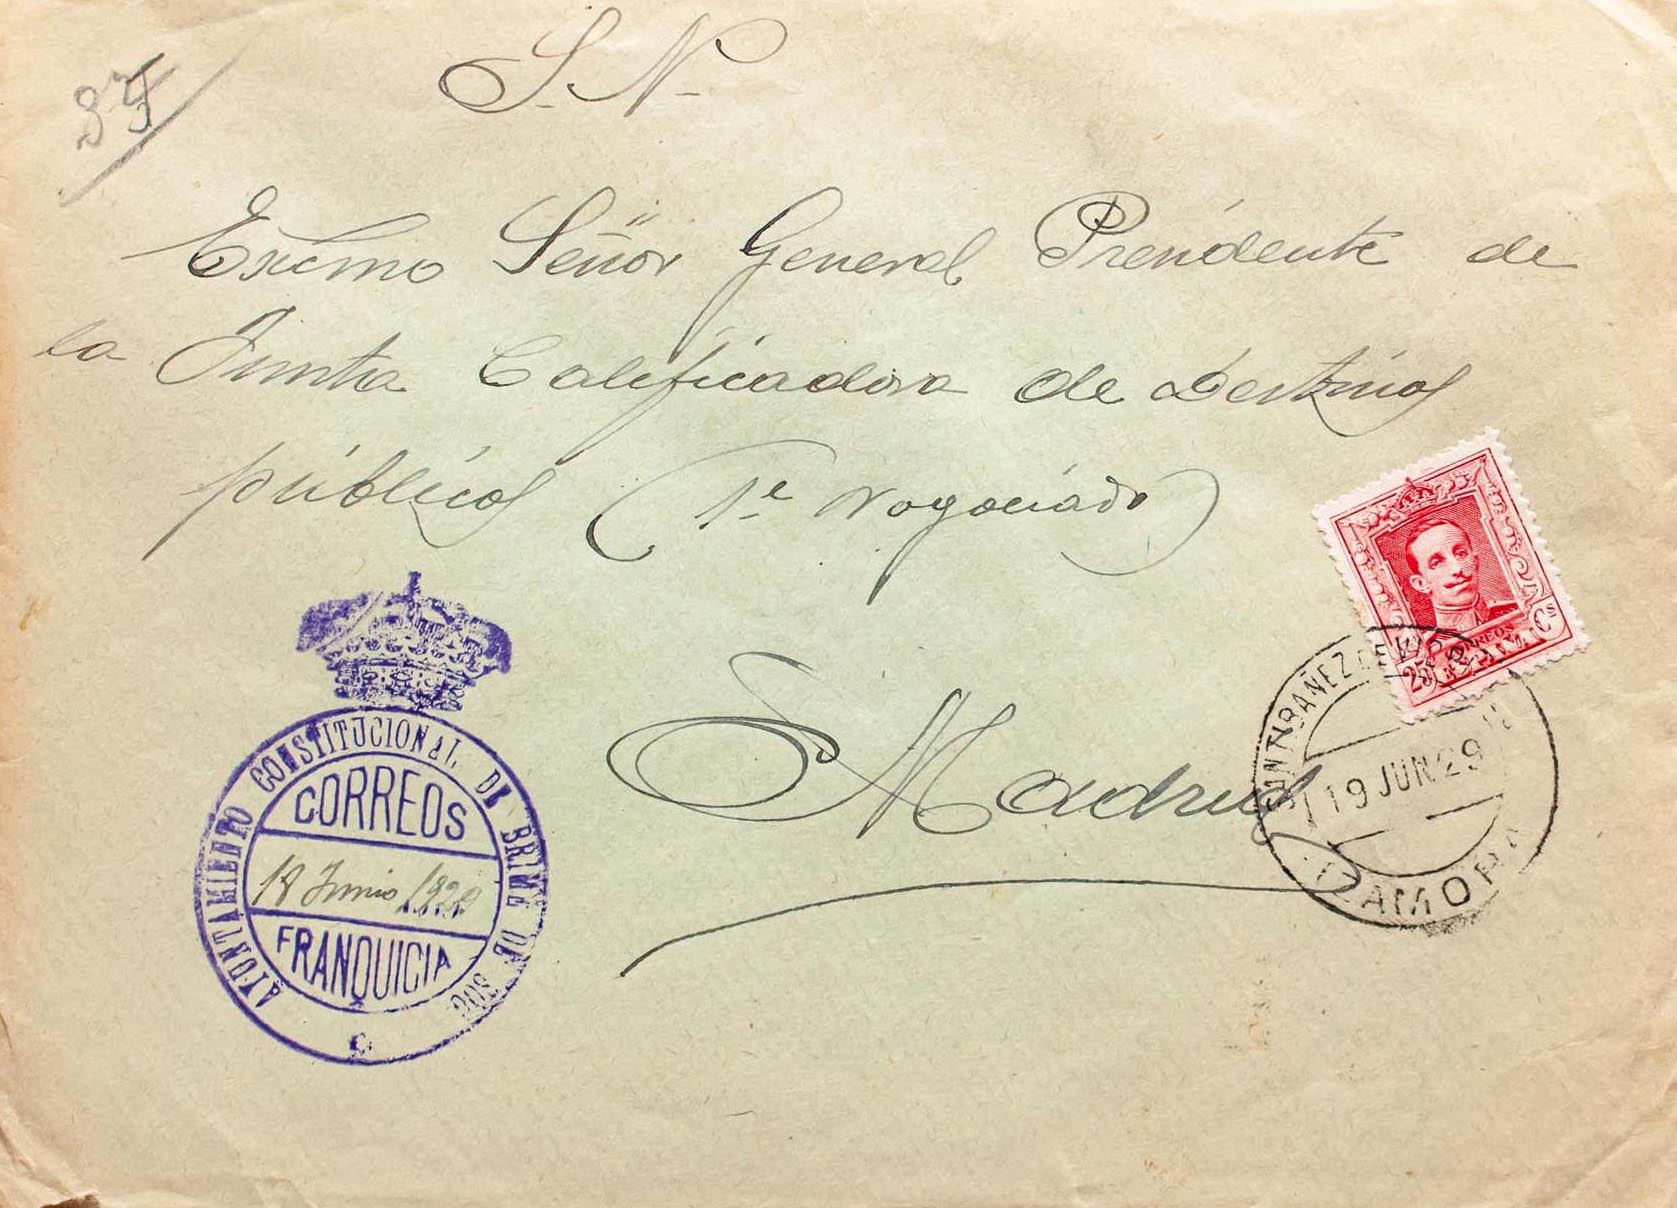 S. N.
Excmo Señor General Presidente de
la Junta Calificadora de Destinos
públicos (1er Negociado)
Madrid
AYUNTAMIENTO CONSTITUCIONAL DE BRIME DE SOG
CORREOS
18 Junio 1929
FRANQUICIA
CORREOS
25 Cs
SANTIBAÑEZ DE VIDR
19 JUN 29
ZAMORA